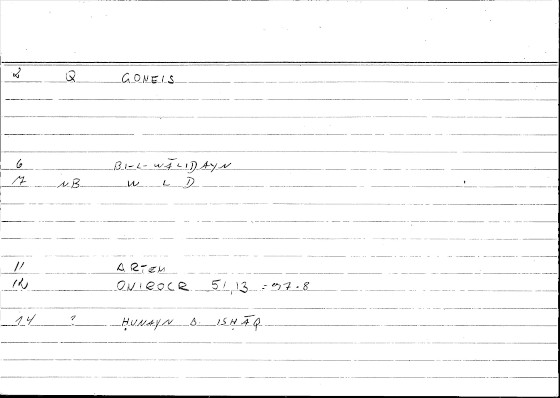 8 Q GONEIS
6 BI-L-WĀLIDAYN
7 NB W L D
11 ARTEM
12 ONIROCR 51,13 = 37.8
14 ? ḤUNAYN B. ISḤĀQ